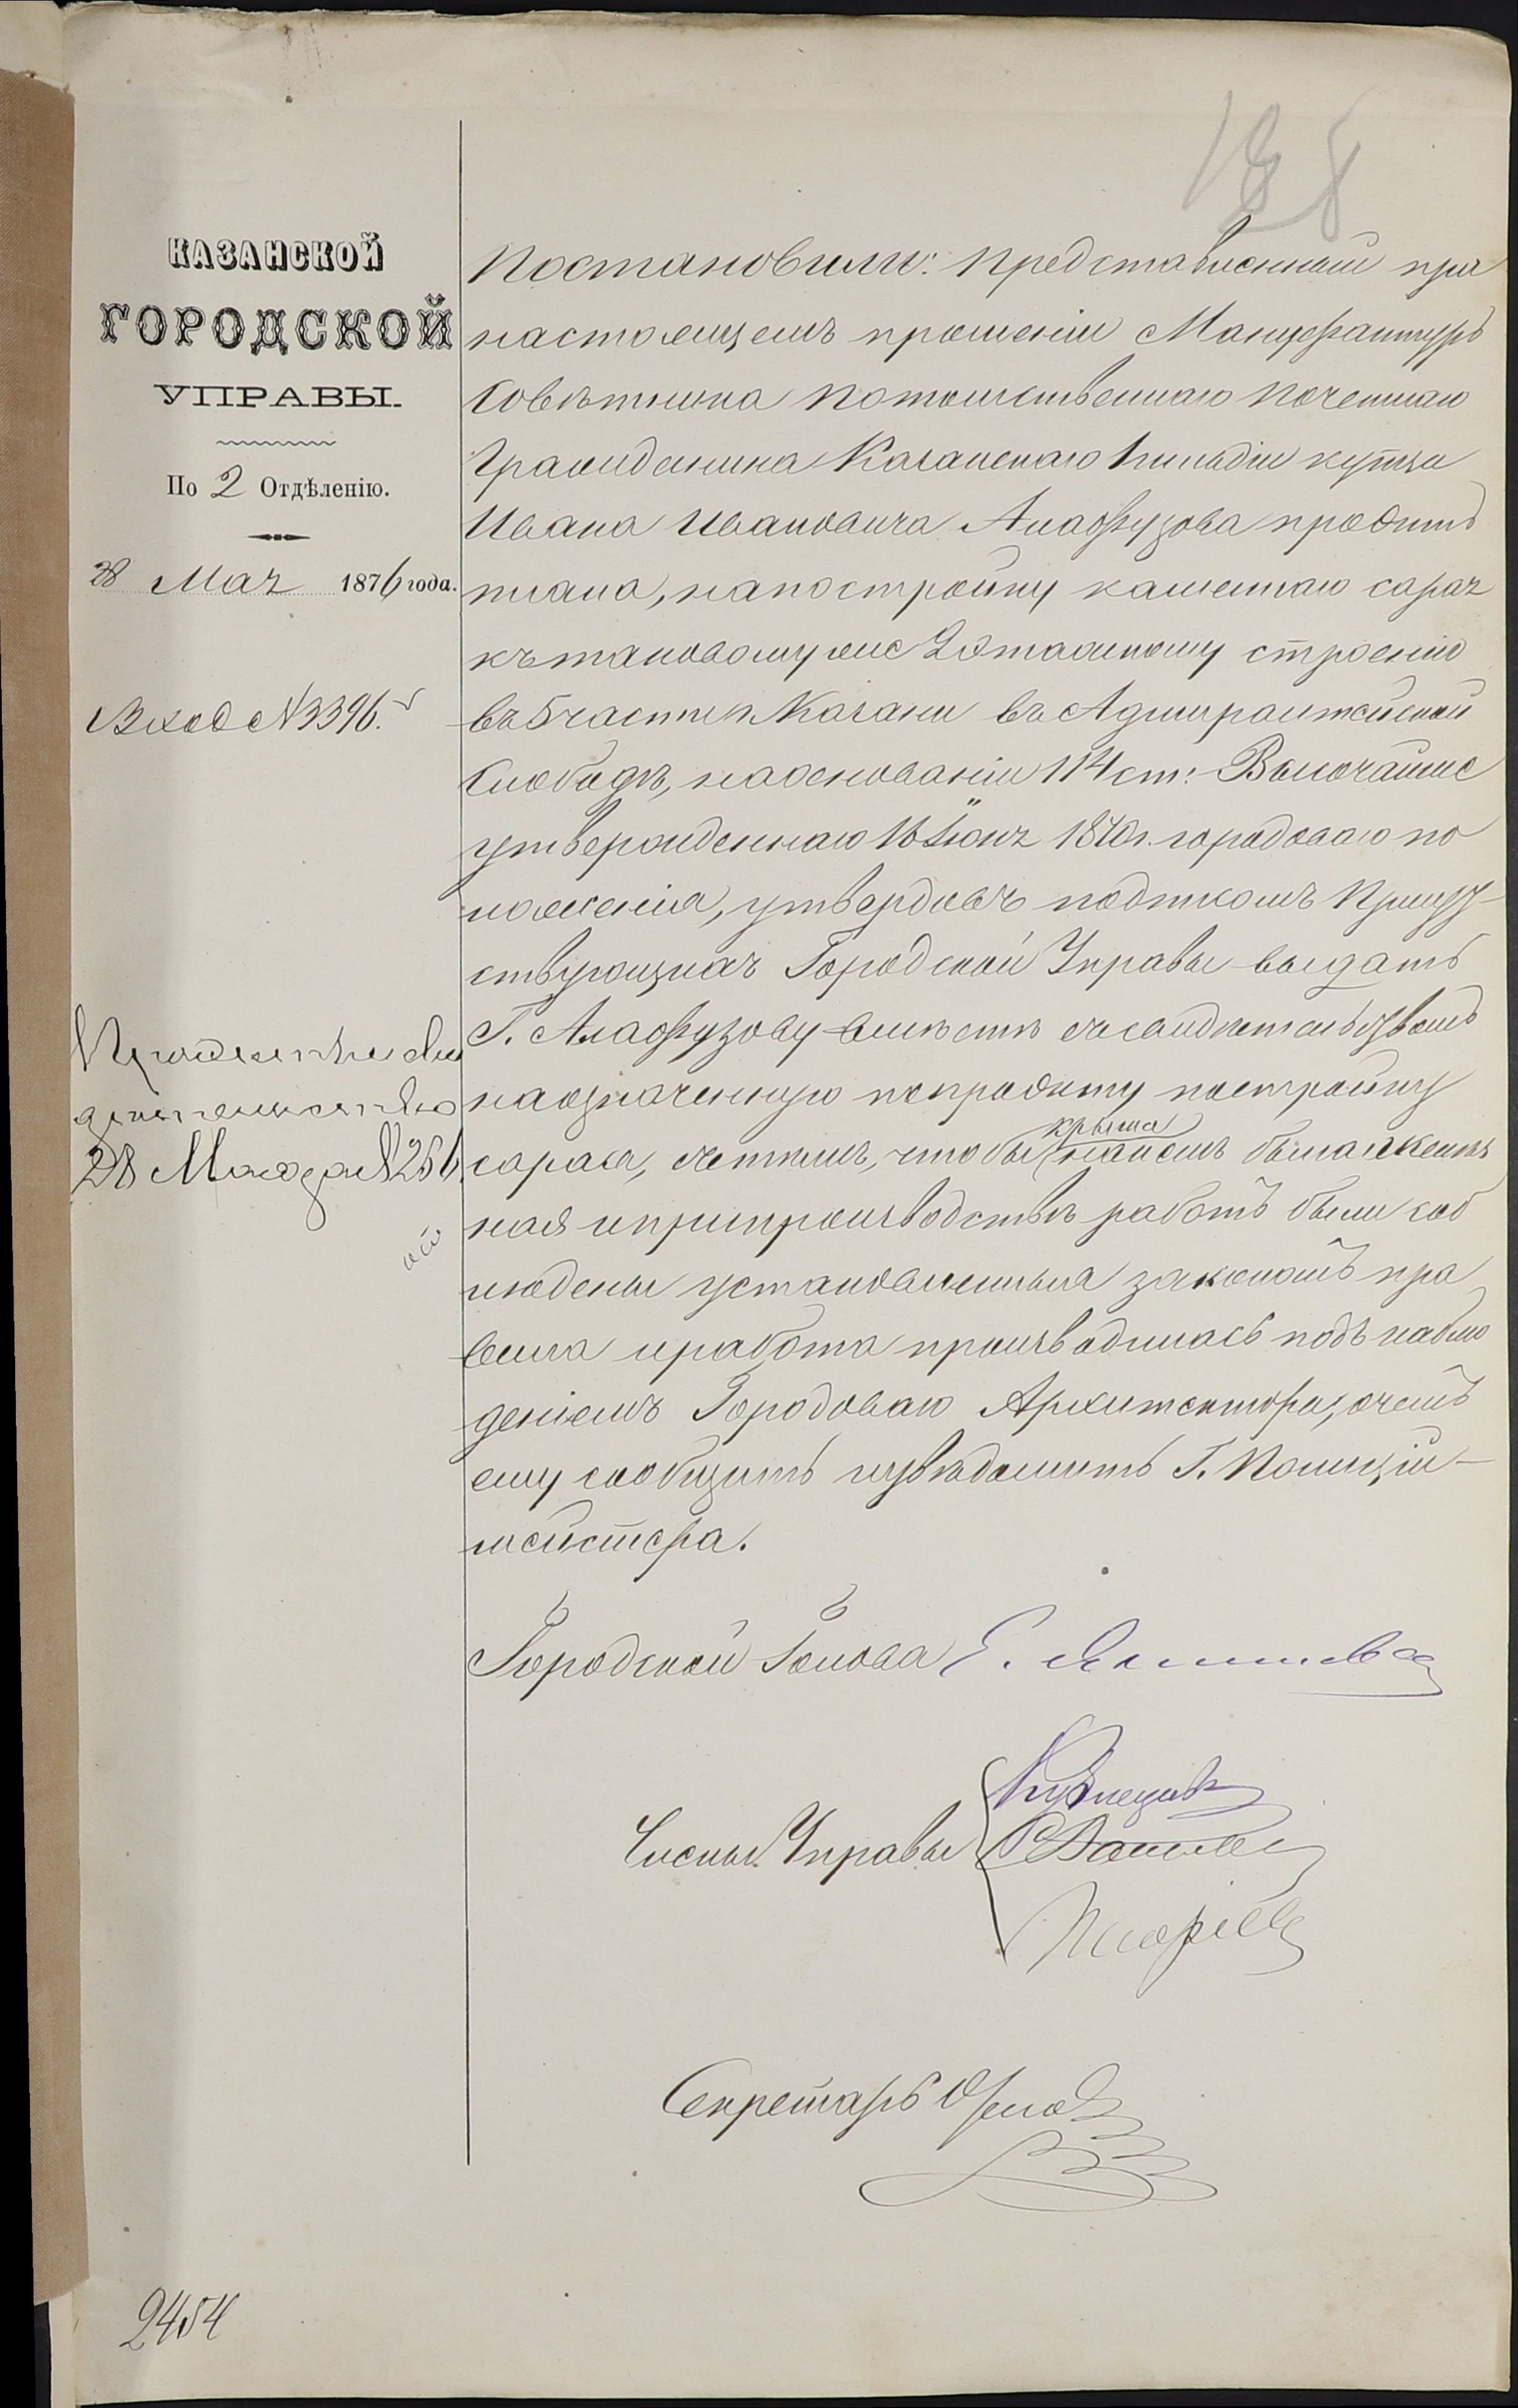 188
КАЗАНСКОЙ
ГОРОДСКОЙ
УПРАВЫ.
По 2 Отдѣленію.
28 Мая 1876 года.
Вход № 3396.
28 Мая № 256
Постановили: представленный при
настоящемъ прошеніи Мануфактуръ
Совѣтника Потомственнаго Почетнаго
Гражданина Казанскаго 1 гильдіи купца
Ивана Ивановича Алафузова проэктъ
плана, на постройку каменнаго сарая
къ таковому же 2 этажному строенію
въ 5 части г. Казани въ Адмиралтейской
Слободѣ, на основаніи 114 ст: Высочайше
утвержденнаго 16 Іюня 1870 г. городоваго по
ложенія, утвердивъ подписомъ Присут-
ствующихъ Городской Управы выдать
Г. Алафузову вмѣстѣ съ свидѣтельствомъ
на означенную по проэкту постройку
сарая, съ тѣмъ, чтобы крыша на немъ была желѣз
ная и при производствѣ работъ были соб
людены установленныя закономъ пра
вила и работа производилась подъ наблю
деніемъ Городоваго Архитектора, о чемъ
ему сообщить и увѣдомить Г. Полицій-
мейстера.
Городской Голова Е.
Члены Управы
Кузнецовъ
Секретарь
2454